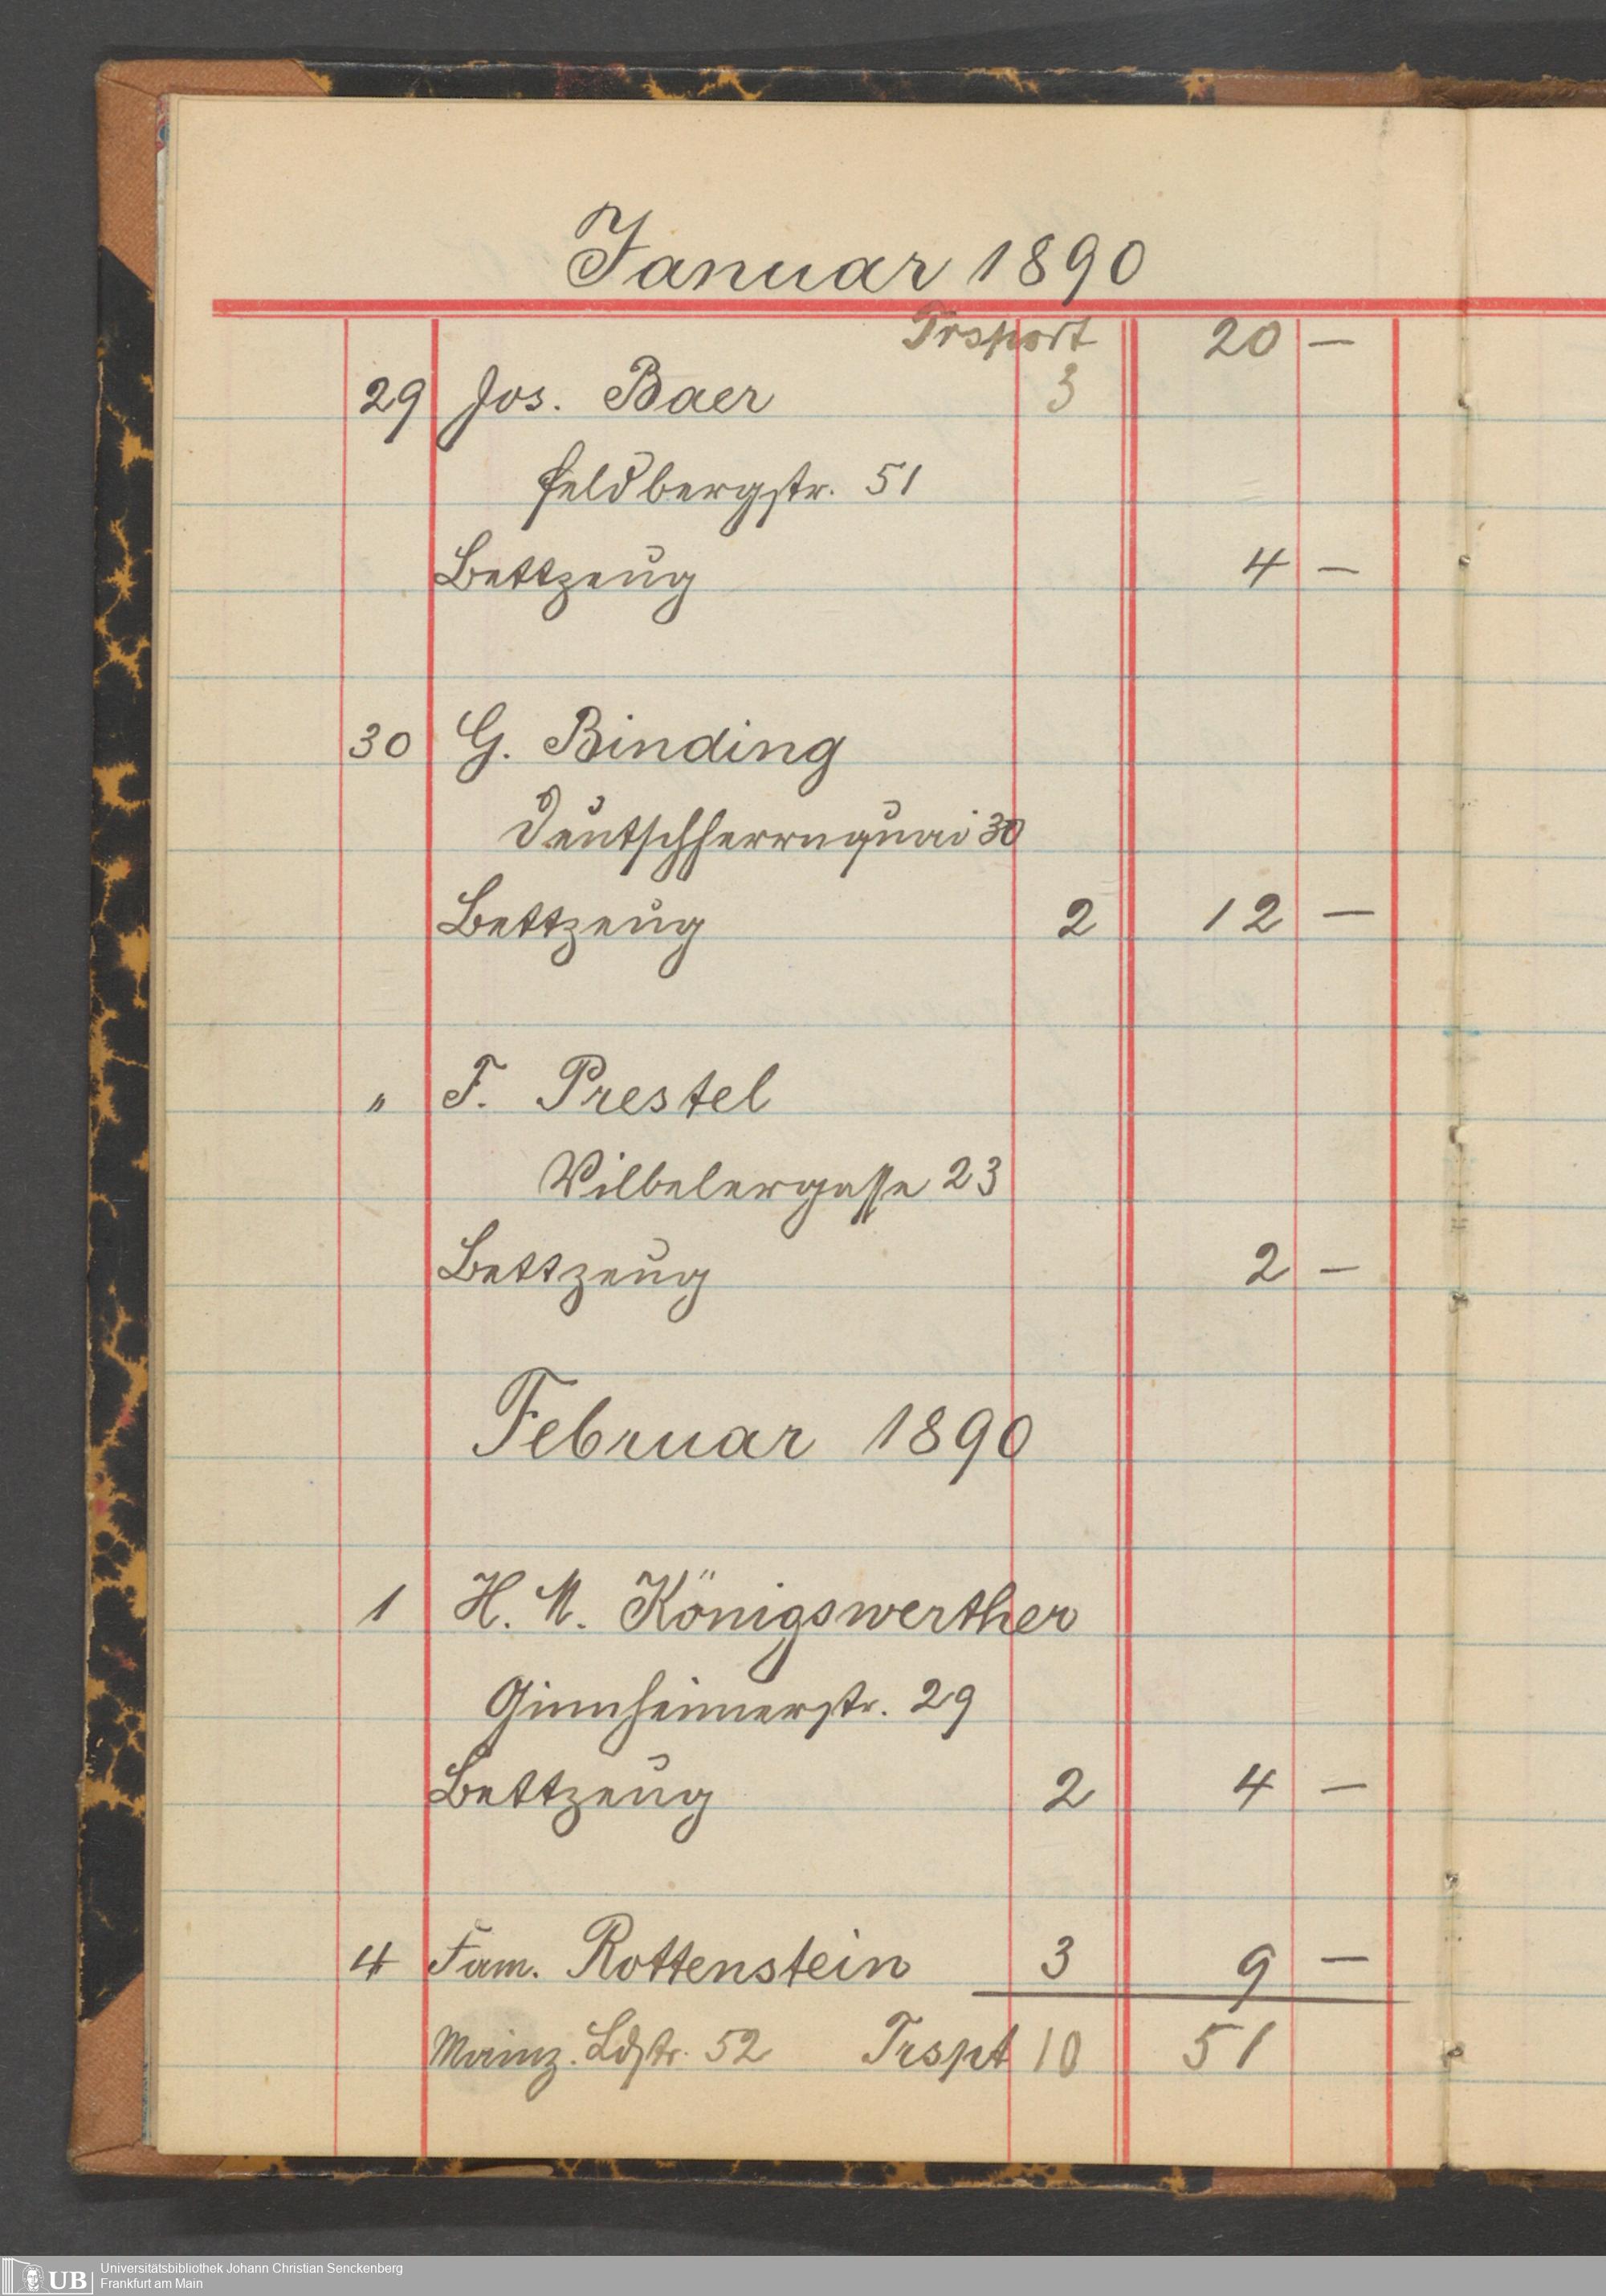 Januar 1890
Trsport 20 —
29 Jos. Baer 3
Feldbergstr. 51
Bettzeug 4 —
30 G. Binding
Deutschherrnquai 30
Bettzeug 2 12 —
" F. Prestel
Vilbelergasse 23
Bettzeug 2 —
Februar 1890
1 H. M. Königswerther
Ginnheimerstr. 29
Bettzeug 2 4 —
4 Fam. Rottenstein 3 9 —
Mainz. Ldstr. 52 Trspt 10 51
UB Universitätsbibliothek Johann Christian Senckenberg
Frankfurt am Main